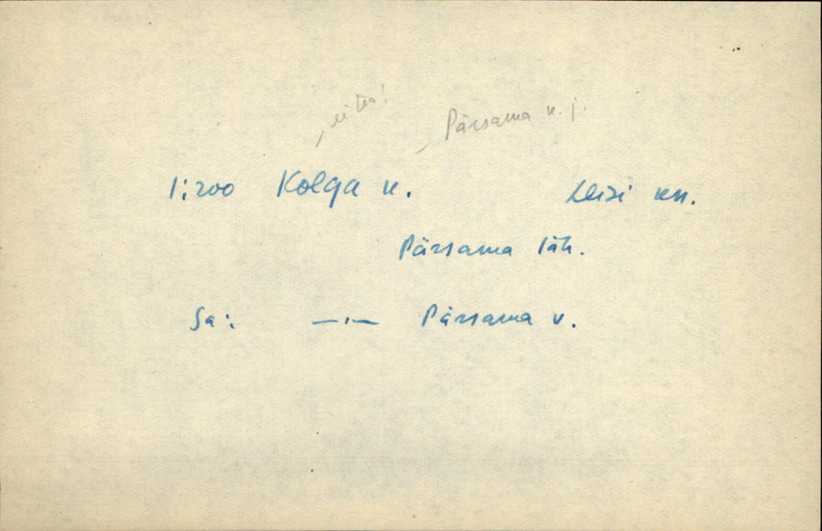 ei tea!
Pärsama k. j.
1:200 Kolga k. Leisi kn.
Pärsama läh.
Sa: —"— Pärsama v.